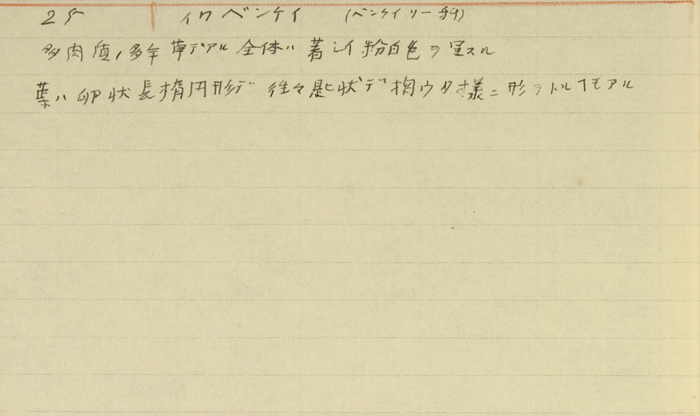 25 イワベンケイ (ベンケイソー科)
多肉質ノ多年草デアル 全体ハ著シイ粉白色ヲ呈スル
葉ハ卵状長楕円形デ 往々匙状デ掬ウタ様ニ形ヲトルコトモアル